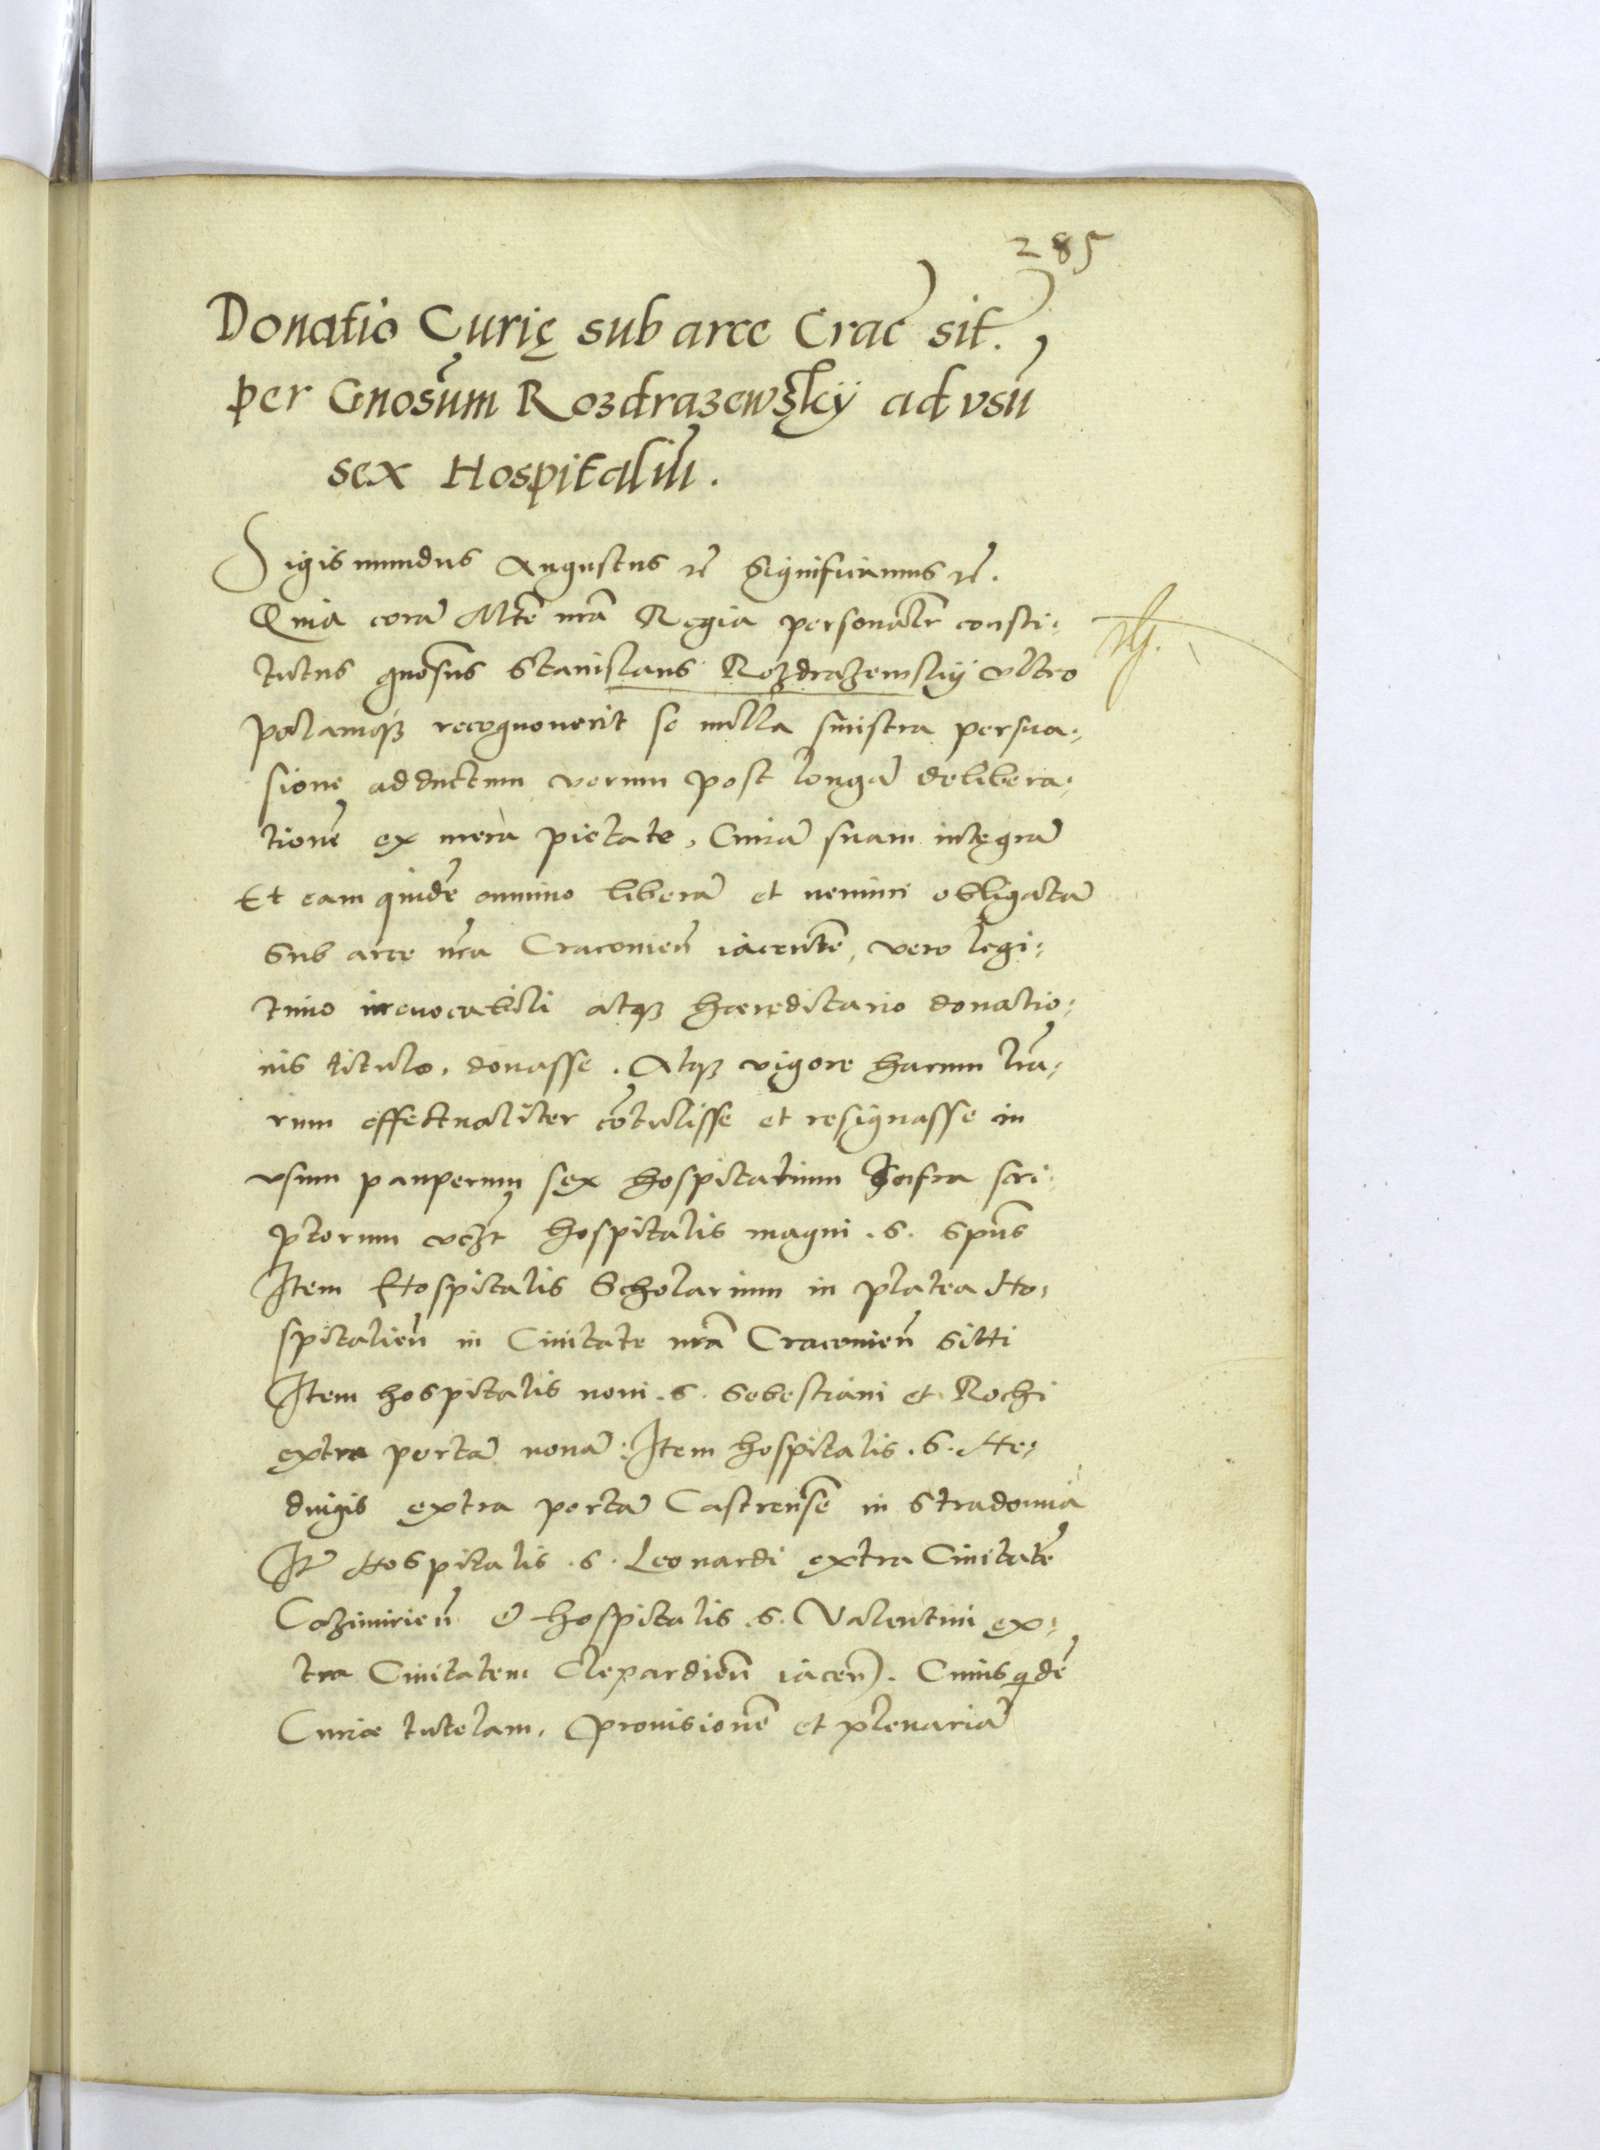 285
Donatio Curię sub arce Crac̄ sit.
per Gnosũm Rozdrazewskÿ ad vsũ
sex Hospitaliũ.
Sigismundus Augustus etc̃ Significamus etc̃.
Quia corã Mtẽ nrã Regia personalr̃ consti-
tutus gnosũs Stanislaus Rozdrazewskÿ vltro
palamqȝ recognouerit se nulla sinistra persua-
sione adductum verum post longã delibera-
tionẽ ex mera pietate, Curiã suam integrã
Et eam quidẽ omnino liberã et nemini obligatã
Sub arce nr̃a Cracouieñ iacentẽ, vero legi-
timo irreuocabili atqȝ hæreditario donatio-
nis titulo, donasse. Atqȝ vigore harum lr̃a-
rum effectualiter cõtulisse et resignasse in
vsum pauperum sex hospitalium Infra scri-
ptorum vcȝt hospitalis magni .S. Spũs
Item Hospitalis Scholarium in platea Ho-
spitalieñ in Ciuitate nrã Cracouieñ Sitti
Item hospitalis noui .S. Sebestiani et Rochi
extra portã nouã: Item hospitalis .S. He-
duigis extra portã Castrensẽ in Stradomia
It̃ Hospitalis .S. Leonardi extra Ciuitatẽ
Cazimirieñ & hospitalis .S. Valentini ex-
tra Ciuitatem Clepardieñ iaceñ. Cuius qdẽ
Curiæ tutelam, prouisionẽ et plenariã